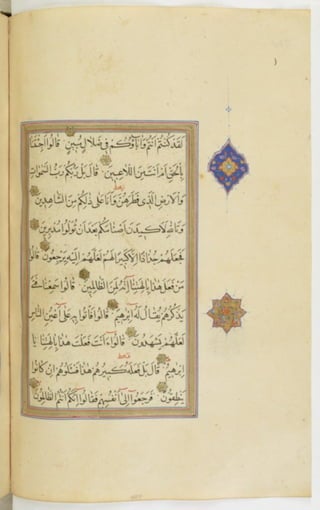 لقد كنتم انتم وآباؤكم في ضلال مبين قالوا اجئتنا
بالحق ام انت من اللاعبين قال بل ربكم رب السموات
والارض الذي فطرهن وانا على ذلكم من الشاهدين
وتالله لاكيدن اصنامكم بعد ان تولوا مدبرين
فجعلهم جذاذا الا كبيرا لهم لعلهم اليه يرجعون قالوا
من فعل هذا بآلهتنا انه لمن الظالمين قالوا سمعنا فتى
يذكرهم يقال له ابرهيم قالوا فاتوا به على اعين الناس
لعلهم يشهدون قالوا ءانت فعلت هذا بآلهتنا يا
ابرهيم قال بل فعله كبيرهم هذا فسئلوهم ان كانوا
ينطقون فرجعوا الى انفسهم فقالوا انكم انتم الظالمون